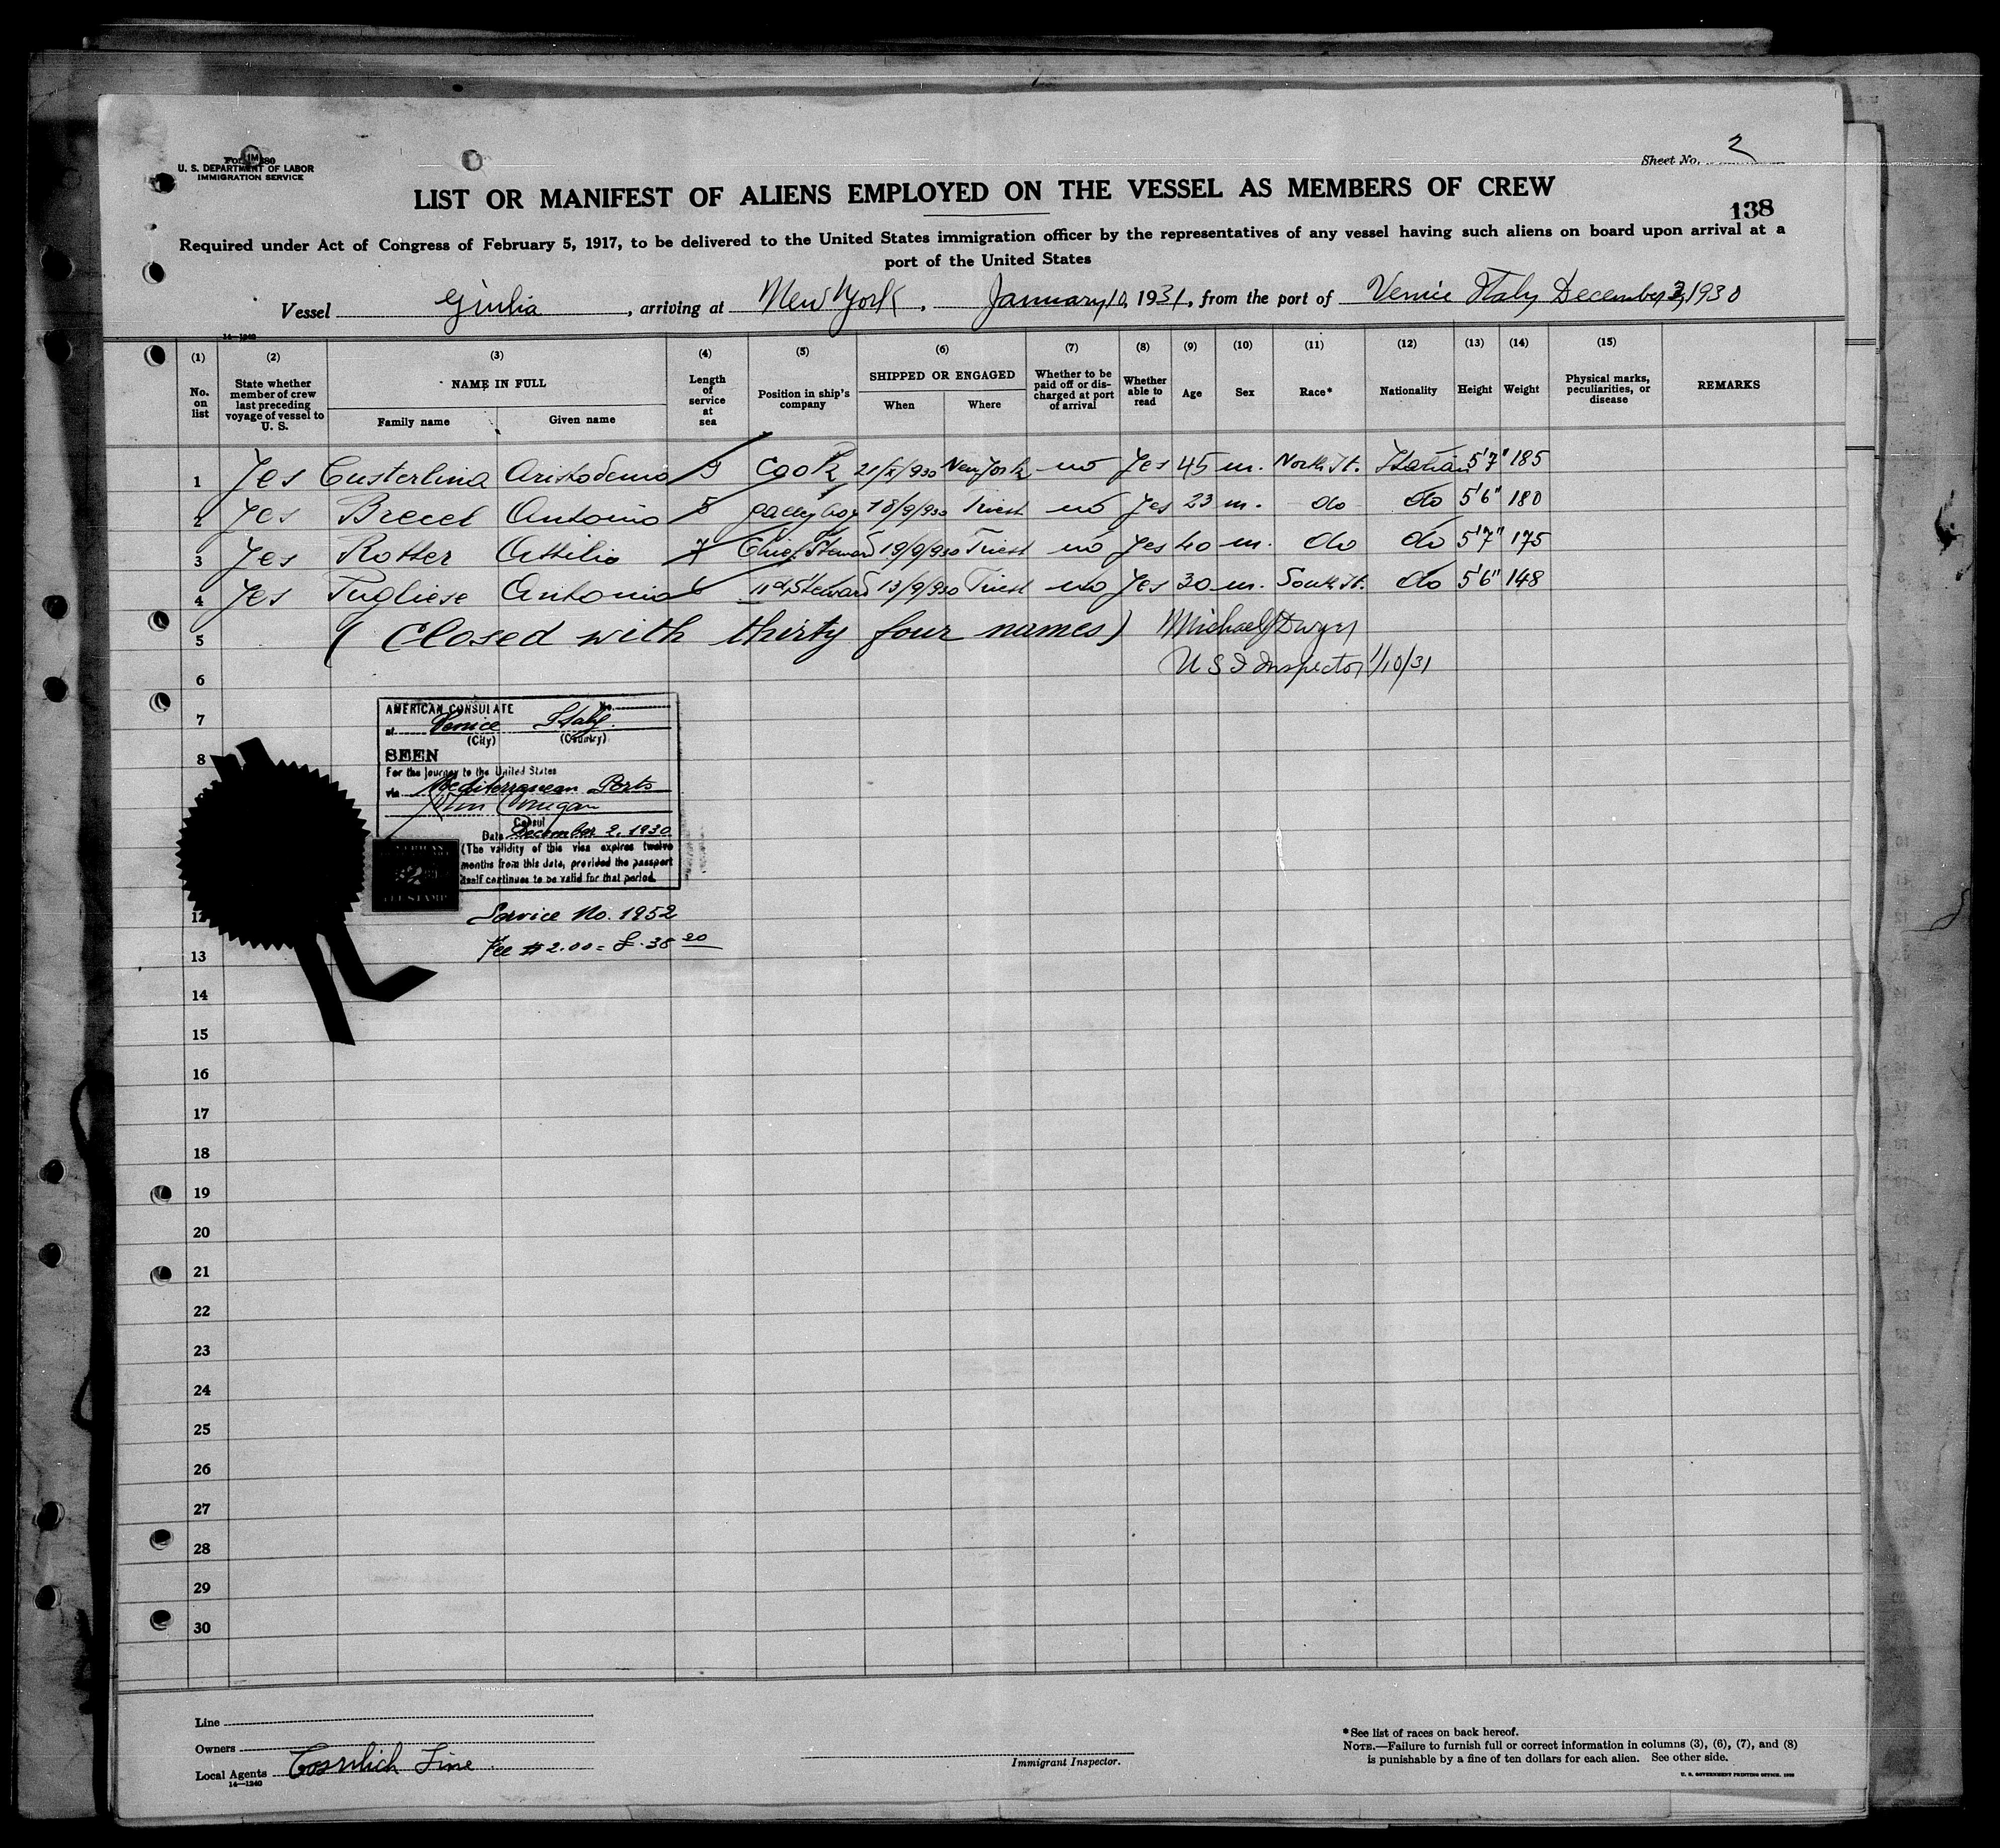 Form 680
U. S. DEPARTMENT OF LABOR
IMMIGRATION SERVICE
Sheet No. 2
LIST OR MANIFEST OF ALIENS EMPLOYED ON THE VESSEL AS MEMBERS OF CREW
138
Required under Act of Congress of February 5, 1917, to be delivered to the United States immigration officer by the representatives of any vessel having such aliens on board upon arrival at a
port of the United States
Vessel Giulia, arriving at New York, January 10, 1931, from the port of Venice Italy December 2, 1930
14—1240
(1) (2) (3) (4) (5) (6) (7) (8) (9) (10) (11) (12) (13) (14) (15)
No. on list
State whether member of crew last preceding voyage of vessel to U. S.
NAME IN FULL
Family name Given name
Length of service at sea
Position in ship's company
SHIPPED OR ENGAGED
When Where
Whether to be paid off or discharged at port of arrival
Whether able to read
Age Sex Race* Nationality Height Weight
Physical marks, peculiarities, or disease
REMARKS
1 Yes Custerlina Aristodemo 9 Cook New York no Yes 45 m. North It. Italian 5'7" 185
2 Yes Brecel Antonio 8 galley boy 18/9/930 Triest no Yes 23 m. do do 5'6" 180
3 Yes Rotter Attilio 7 Chief Steward 19/9/930 Triest no Yes 40 m. do do 5'7" 175
4 Yes Antonio 6 IId Steward 13/9/930 Triest no Yes 30 m. South It. do 5'6" 148
5 (Closed with thirty four names) Michael J Dwyer
6 U S I Inspector 1/10/31
7
8
12
13
14
15
16
17
18
19
20
21
22
23
24
25
26
27
28
29
30
AMERICAN CONSULATE No.
at Venice Italy.
(City) (Country)
SEEN
For the journey to the United States
via Mediterranean Ports
John Corrigan
Consul
Date December 2, 1930
(The validity of this visa expires twelve
months from this date, provided the passport
itself continues to be valid for that period.
Service No. 1952
Fee $2.00 = £. 38 20
Line
Owners
Local Agents Cosulich Line
14—1240
Immigrant Inspector.
*See list of races on back hereof.
NOTE.—Failure to furnish full or correct information in columns (3), (6), (7), and (8)
is punishable by a fine of ten dollars for each alien. See other side.
U. S. GOVERNMENT PRINTING OFFICE